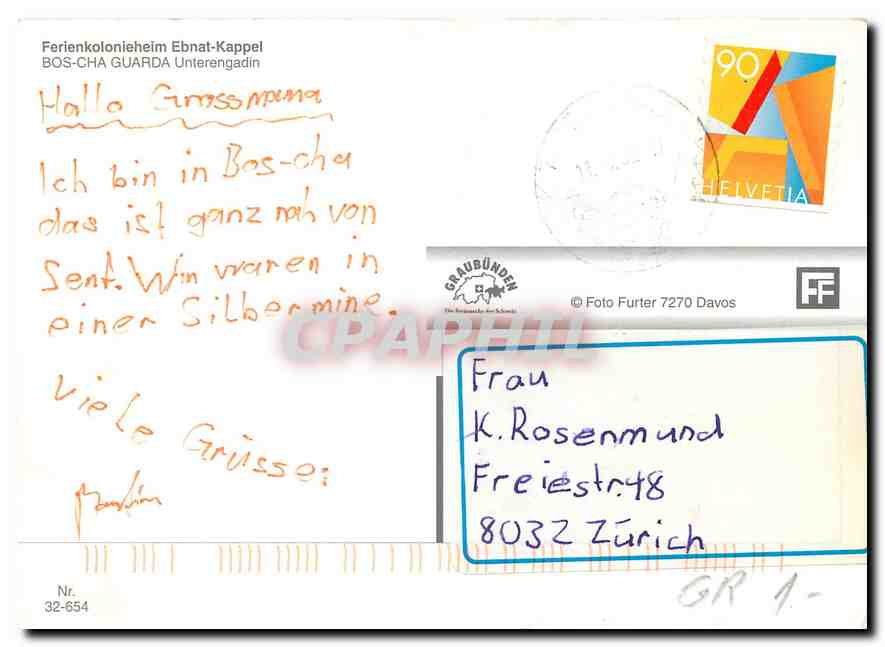 Ferienkolonieheim Ebnat-Kappel
BOS-CHA GUARDA Unterengadin
Hallo Grossmama
Ich bin in Bos-cha
das ist ganz nah von
Sent. Win waren in
einer Silbermine.
Viele Grüsse:
90
HELVETIA
GRAUBÜNDEN
Die Ferienecke der Schweiz
© Foto Furter 7270 Davos
FF
CPAPHIL
Frau
K. Rosenmund
Freiestr. 48
8032 Zürich
Nr.
32-654
GR 1.-